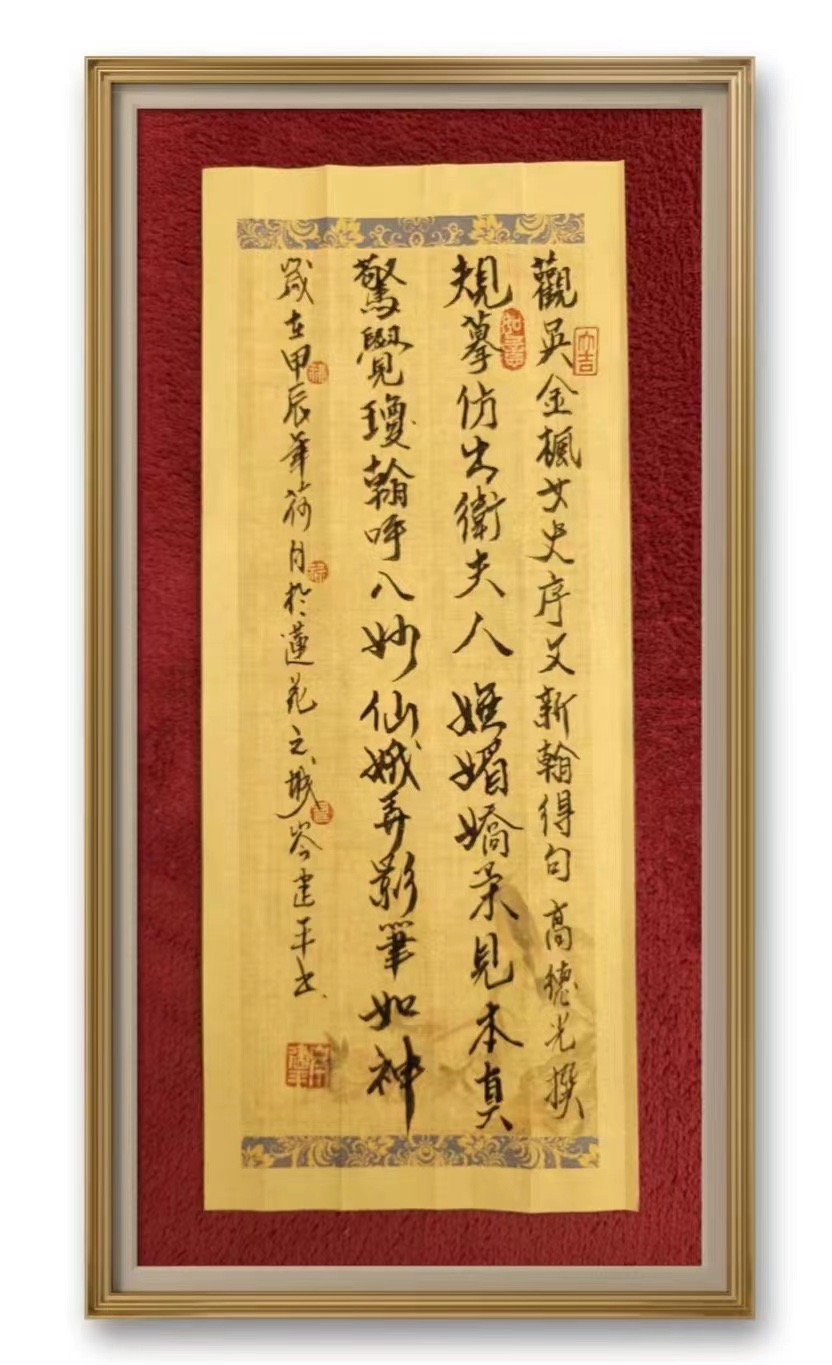 觀吳金楓女史序文新翰得句 高德光撰
規摹仿出衛夫人 嫵媚嬌柔見本真
驚覺瓊翰呼八妙 仙娥弄影筆如神
歲在甲辰年荷月於蓮花之城岑建平書
大吉
如意